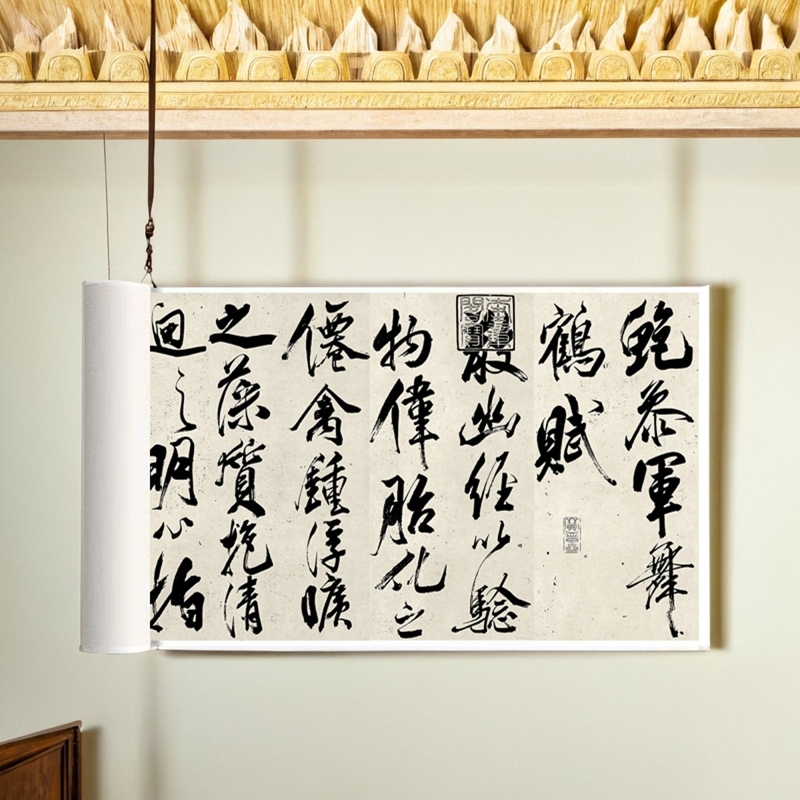 鮑叅軍舞
鶴賦
散幽經以驗
物偉胎化之
僊禽鍾浮曠
之藻質抱清
迥之明心指